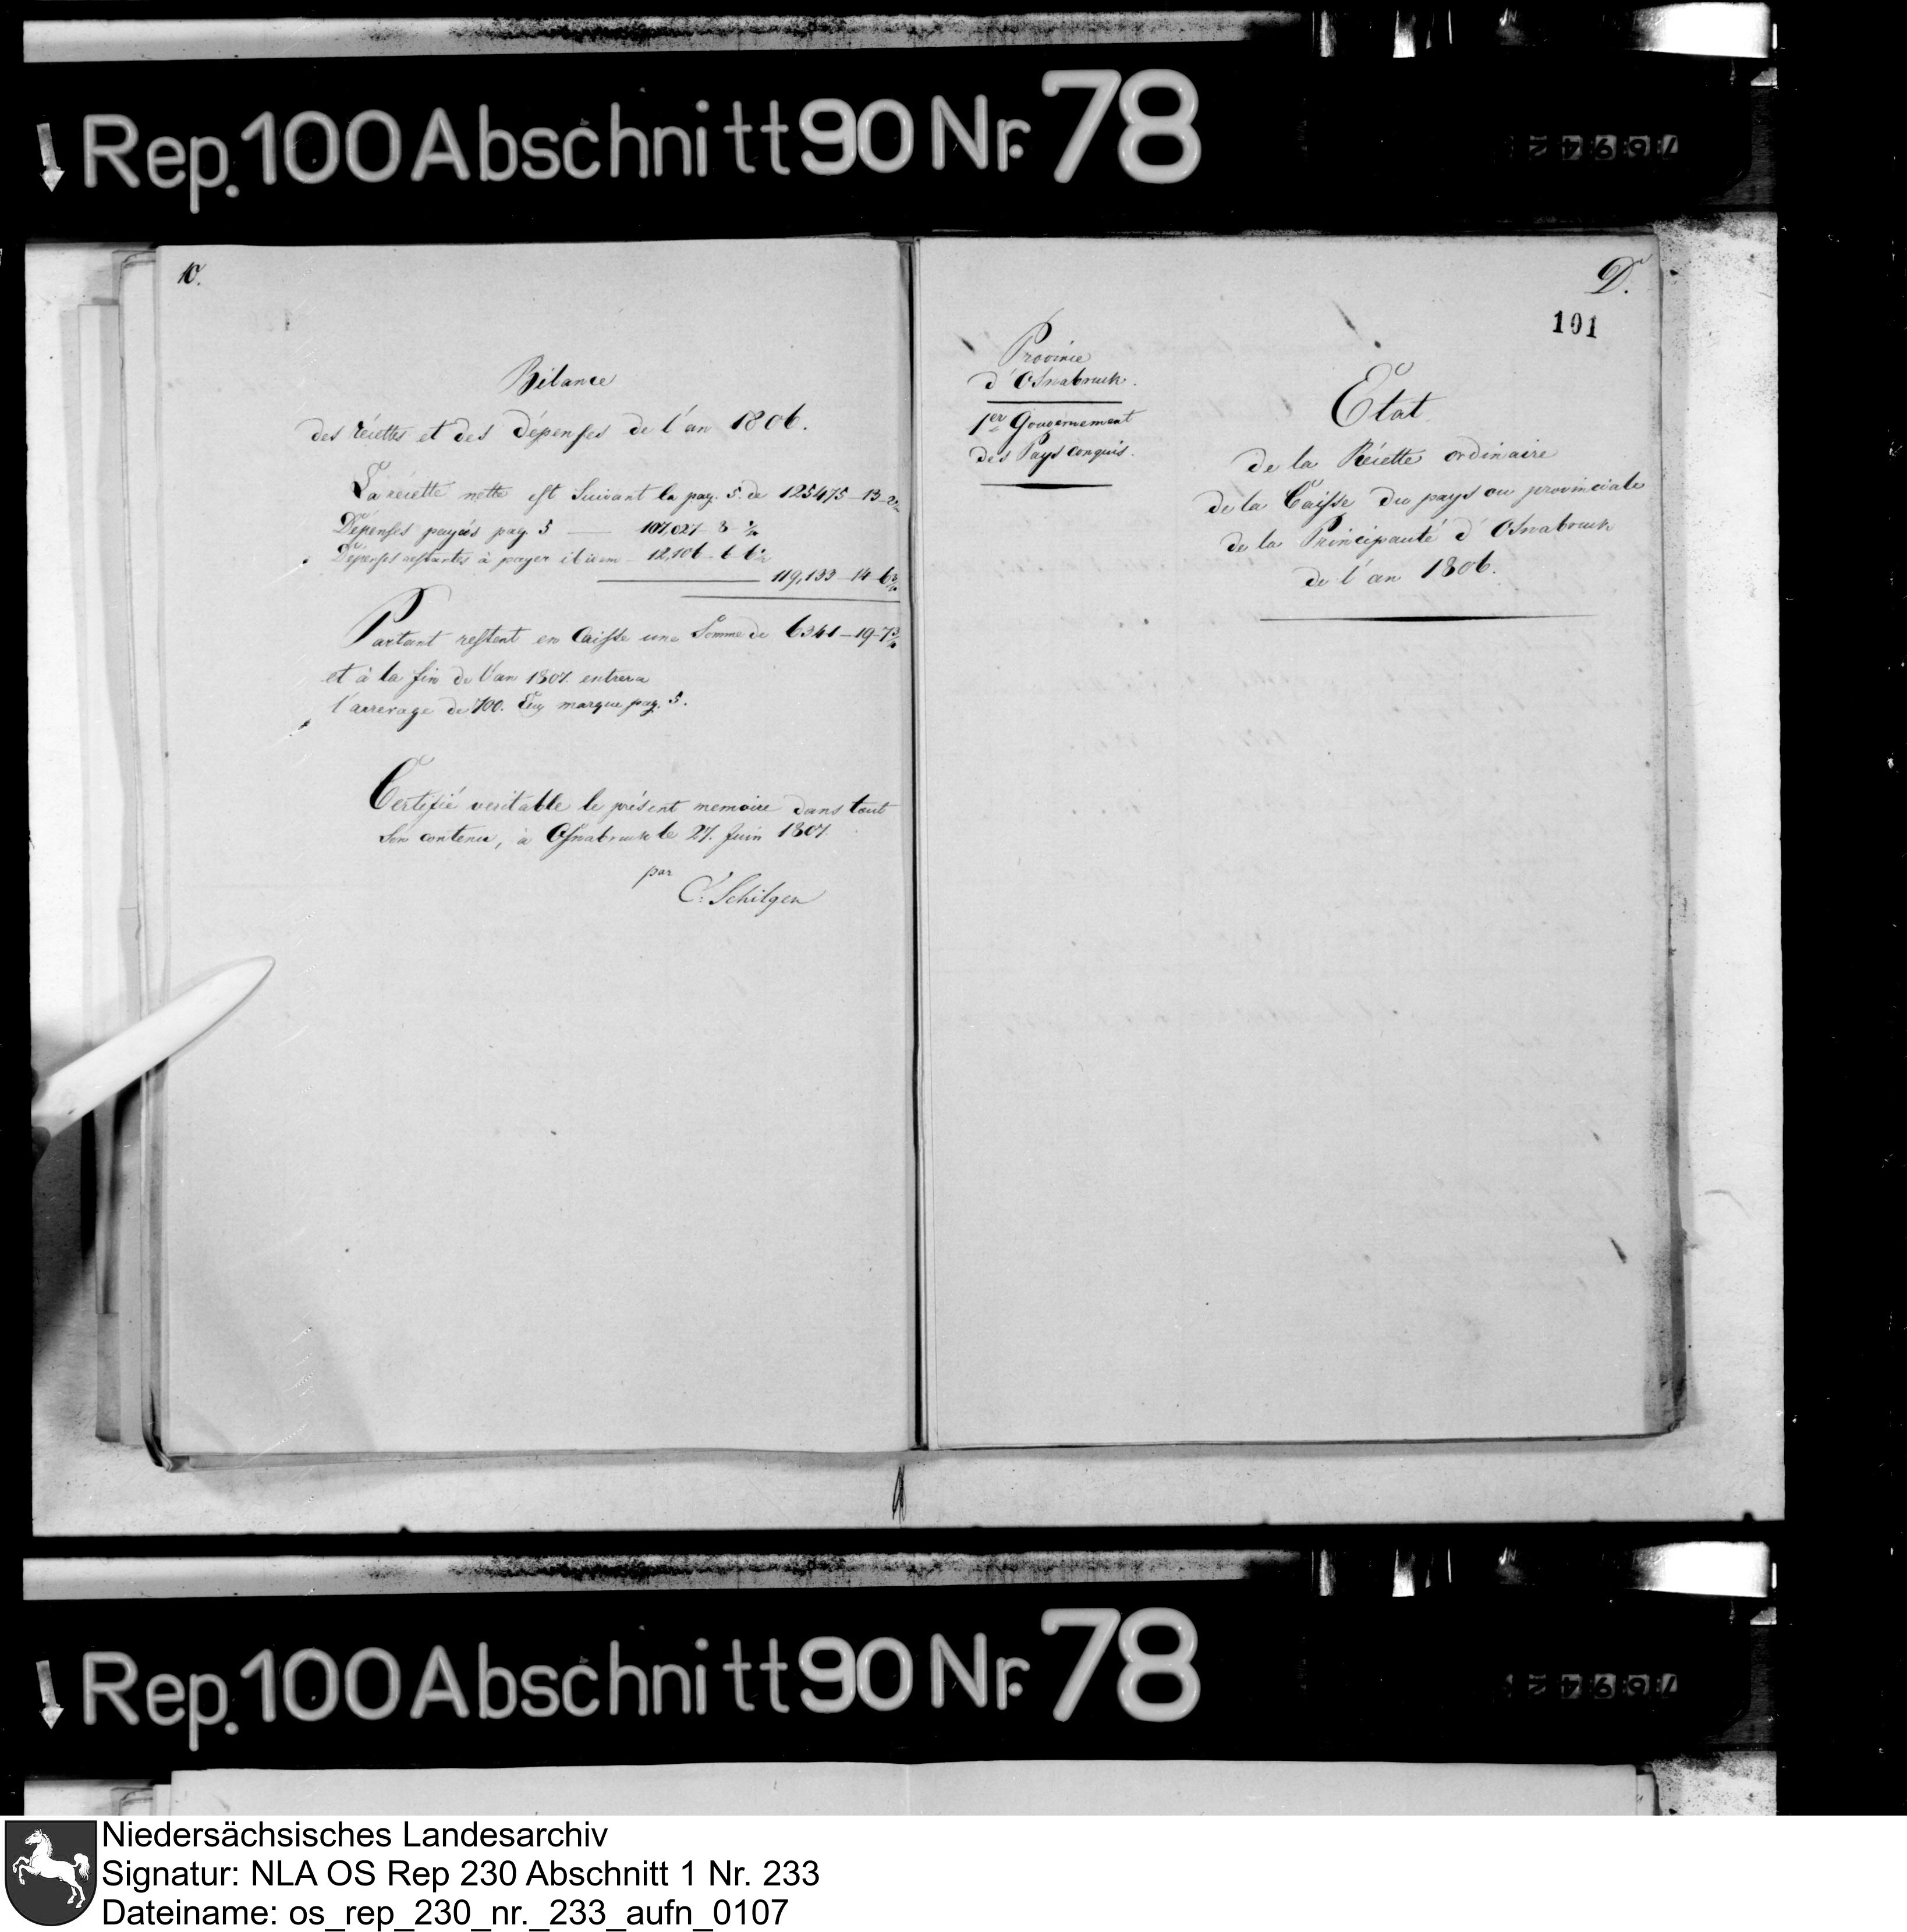 Rep. 100 Abschnitt 90 Nr. 78
10.
Bilance
des réiettes et des dépenses de l'an 1806.
La réiette nette est suivant la pag. 5. de 125475 - 13 - 2
Dépenses payées pag. 5 107,027 - 8 -
Dépenses restantes à payer ibidem 12,106 - 6 - 6
119,133 - 14 - 6
Partant restent en Caisse une Somme de 6341 - 19 - 7
et à la fin de l'an 1807. entrera
l'arrerage de 700. marque pag. 5.
Certifié veritable le présent memoire dans tout
Son contenu, à Osnabruck le 27. Juin 1807.
par
C. Schilgen
D.
101
Province
d'Osnabruck.
1er Gouvernement
des Pays conquis.
Etat
de la Réiette ordinaire
de la Caisse du pays ou provinciale
de la Principauté d'Osnabruck
de l'an 1806.
Rep. 100 Abschnitt 90 Nr. 78
Niedersächsisches Landesarchiv
Signatur: NLA OS Rep 230 Abschnitt 1 Nr. 233
Dateiname: os_rep_230_nr._233_aufn_0107